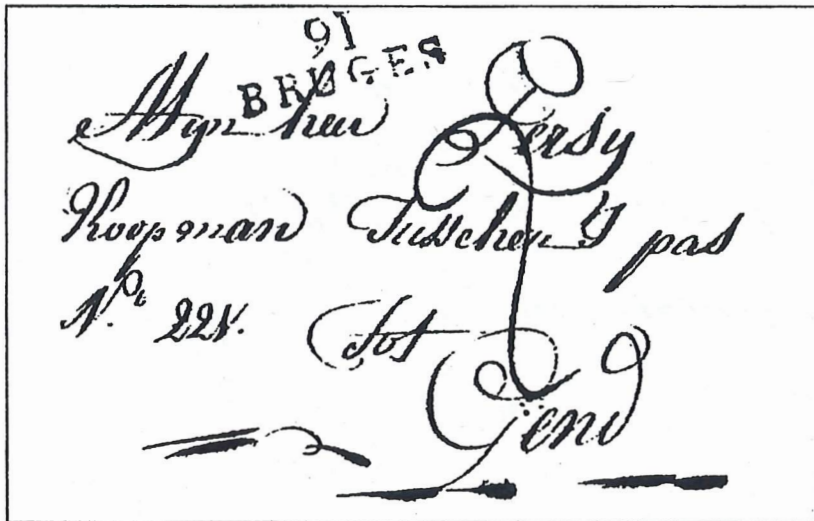 91
BRUGES
Mijn heer Persy
Koopman Tusschen 'T pas
N.º 221.
Tot
Gend